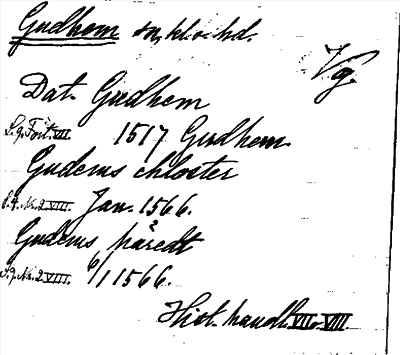 Gudhem sn, kl. o. hd.
Vg.
Dat. Gudhem
S. 9. Fört. VII. 1517 Gudhem
Gudems chloster
S. 9. Nr. 2 VIII. Jan. 1566.
Gudems häredt
S. 9. Nr. 2 VIII. 6/1 1566.
Hist. handl. VII o. VIII.